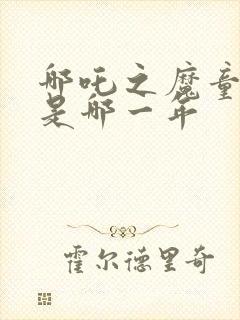 哪吒之魔童
是哪一年
霍尔德里奇